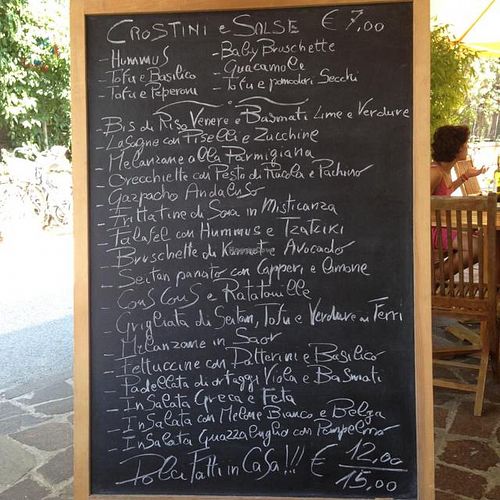 CROSTINI e SALSE € 7,00
- HUMMUS - BABY BRUSCHETTE
- TOFU e BASILICO - GUACAMOLE
- TOFU e PEPERONI - TOFU e POMODORI SECCHI
- BIS di RISO VENERE e BASMATI LIME e VERDURE
- LASAGNE con PISELLI e ZUCCHINE
- MELANZANE alla PARMIGIANA
- ORECCHIETTE con PESTO di RUCOLA e PACHINO
- GAZPACHO ANDALUSO
- FRITTATINE di SOIA in MISTICANZA
- FALAFEL con HUMMUS e TZATZIKI
- BRUSCHETTE di KAMUT e AVOCADO
- SEITAN PANATO con CAPPERI e LIMONE
- COUS COUS e RATATOUILLE
- GRIGLIATA di SEITAN, TOFU e VERDURE ai FERRI
- MELANZANE in SAOR
- FETTUCCINE con DATTERINI e BASILICO
- PADELLATA di ORTAGGI VIOLA e BASMATI
- INSALATA GRECA e FETA
- INSALATA con MELONE BIANCO e BELGA
- INSALATA con POMPELMO
DOLCI FATTI in CASA!!! € 12,00
15,00